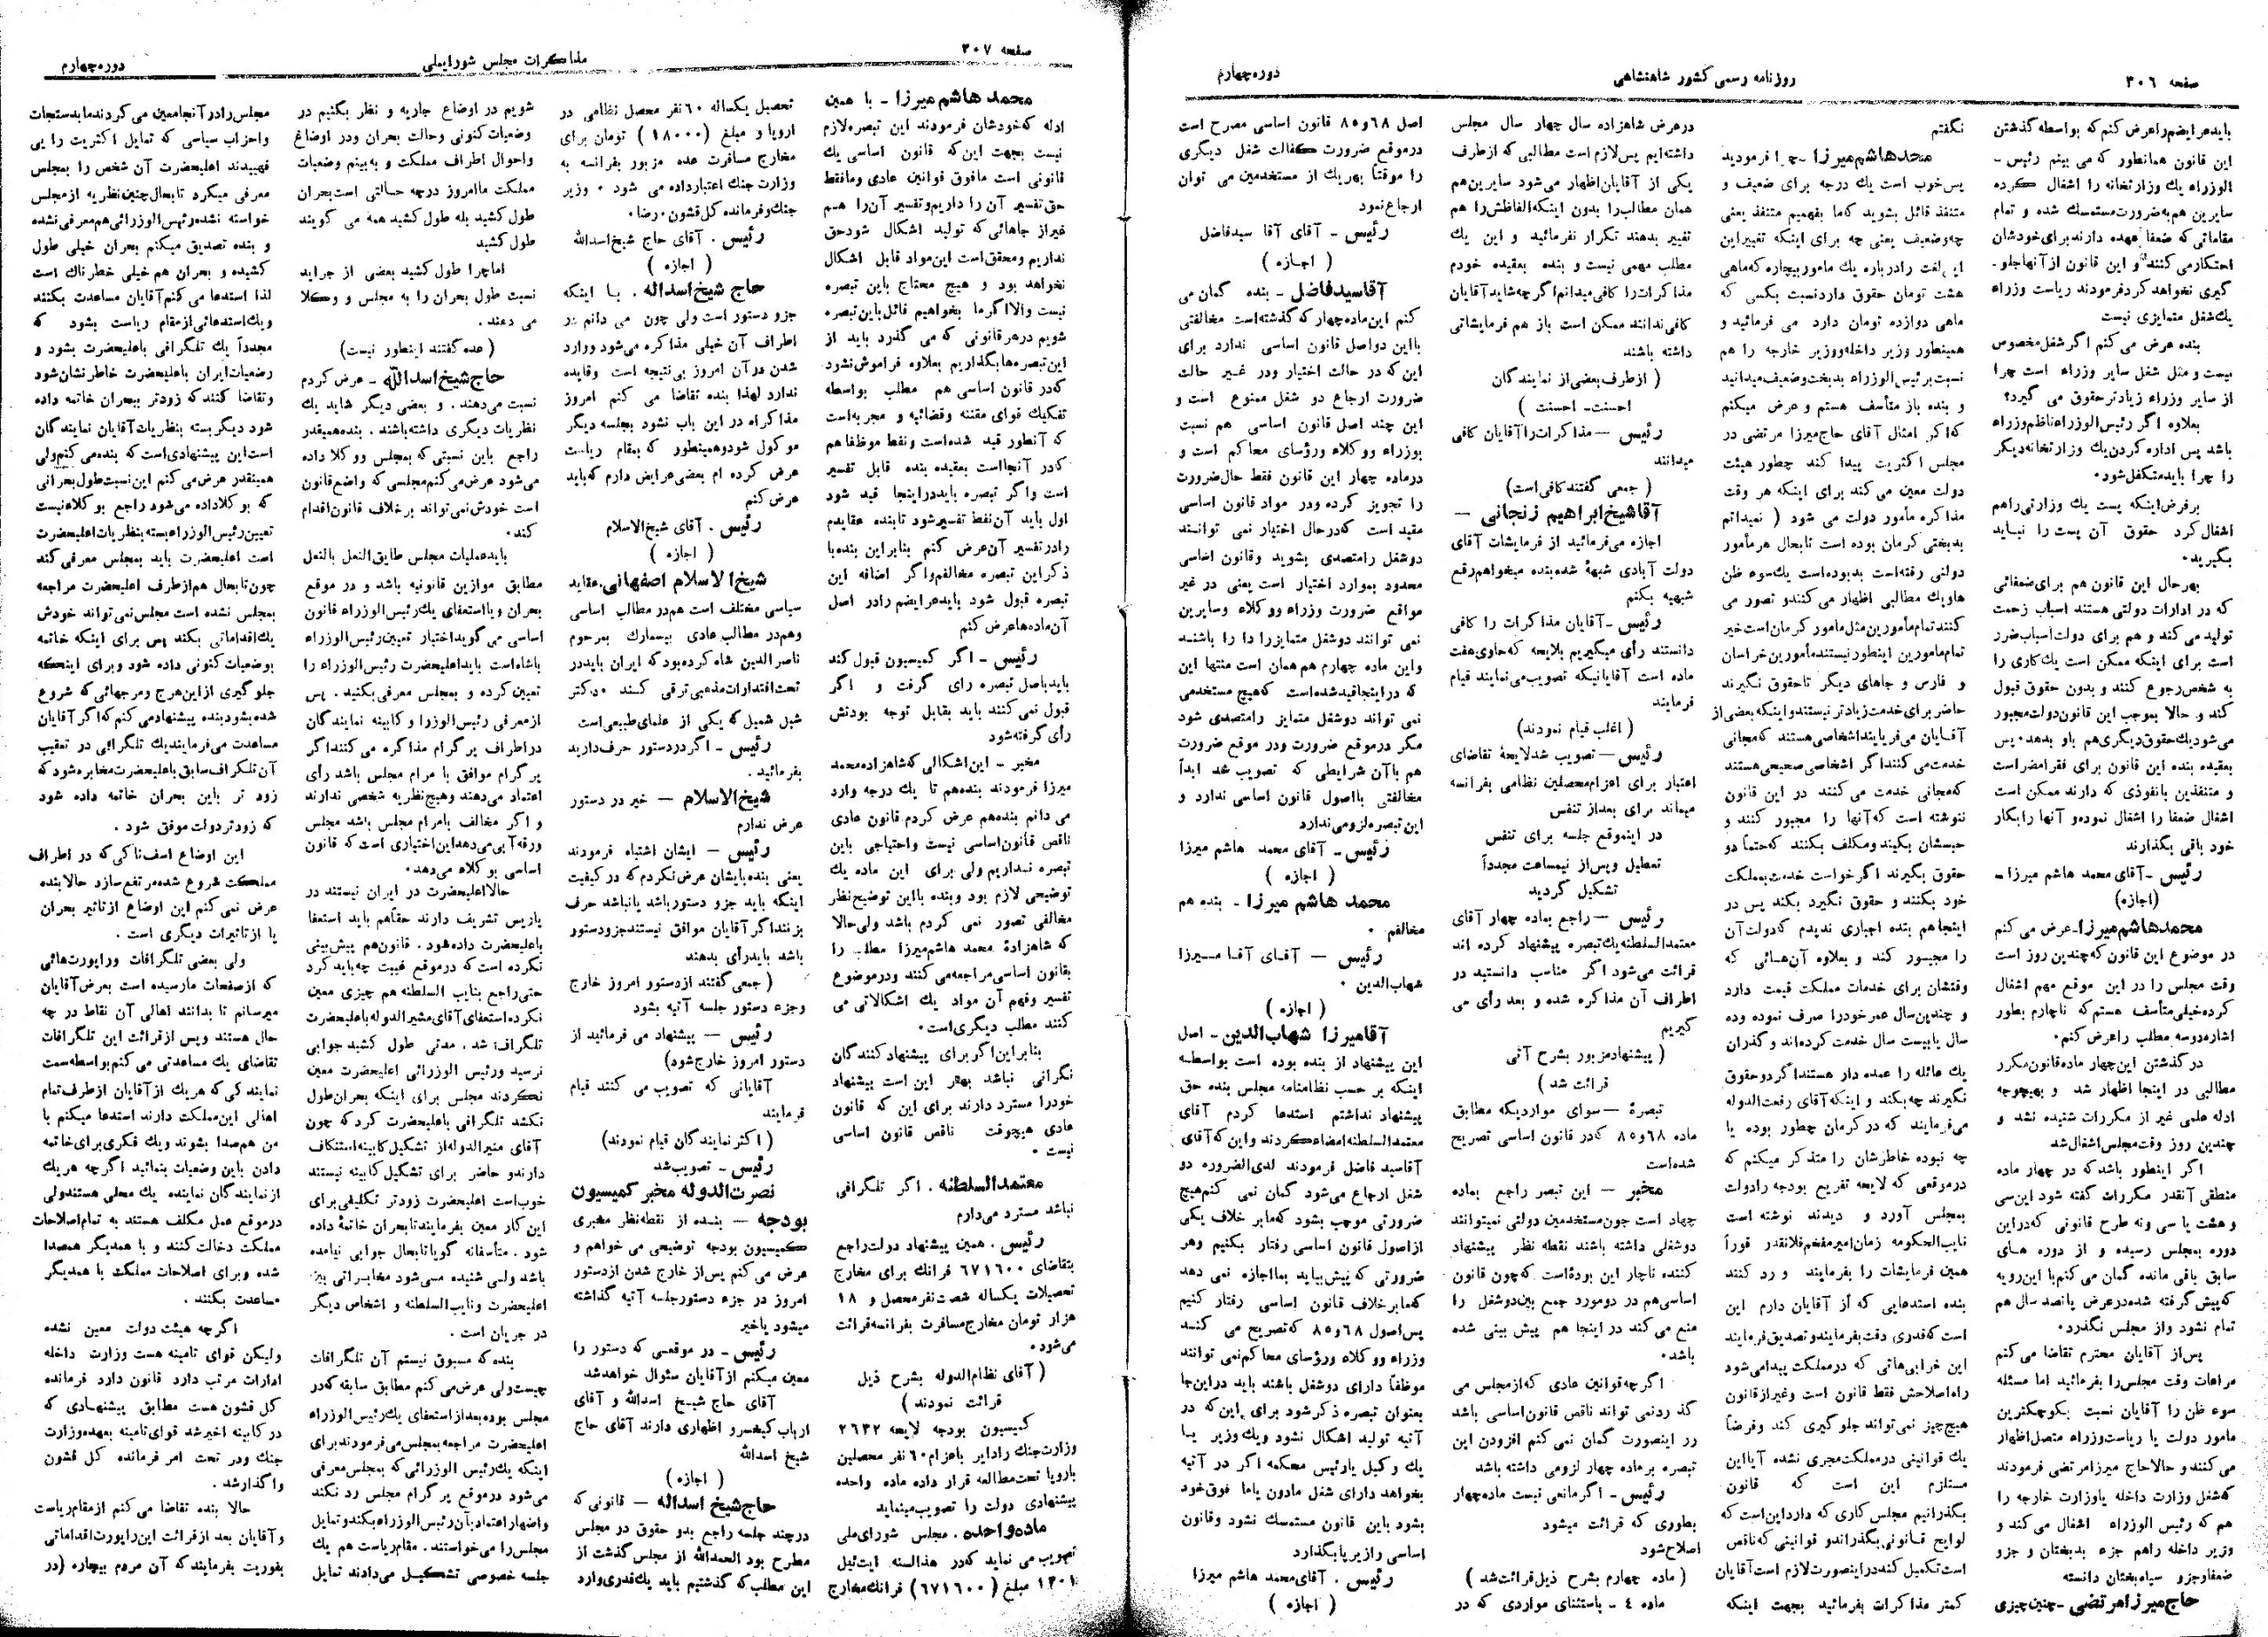 صفحه ۳۰۶
روزنامه رسمی کشور شاهنشاهی
دوره چهارم
باید عرایضم را عرض کنم که بواسطه گذشتن
این قانون همانطور که می بینم رئیس -
الوزراء یك وزارتخانه را اشغال کرده
سایرین هم به ضرورت مستمسك شده و تمام
مقاماتی که ضعفا عهده دارند برای خودشان
احتکار می کنند و این قانون از آنها جلو -
گیری نخواهد کرد فرمودند ریاست وزراء
یك شغل متمایزی نیست
بنده عرض می کنم اگر شغل مخصوص
نیست و مثل شغل سایر وزراء است چرا
از سایر وزراء زیادتر حقوق می گیرد؟
بعلاوه اگر رئیس الوزراء ناظم وزراء
باشد پس اداره کردن یك وزارتخانه دیگر
را چرا باید متکفل شود.
بر فرض اینکه پست یك وزارتی را هم
اشغال کرد حقوق آن پست را نباید
بگیرید.
بهر حال این قانون هم برای ضعفائی
که در ادارات دولتی هستند اسباب زحمت
تولید می کند و هم برای دولت اسباب ضرر
است برای اینکه ممکن است یك کاری را
به شخص رجوع کنند و بدون حقوق قبول
کند و حالا بموجب این قانون دولت مجبور
می شود یك حقوق دیگری هم باو بدهد. پس
بعقیده بنده این قانون برای فقرا مضر است
و متنفذین با نفوذی که دارند ممکن است
اشغال ضعفا را اشغال نموده و آنها را بکار
خود باقی بگذارند
رئیس - آقای محمد هاشم میرزا -
(اجازه)
محمد هاشم میرزا - عرض می کنم
در موضوع این قانون که چندین روز است
وقت مجلس را در این موقع مهم اشغال
کرده خیلی متأسف هستم که ناچارم بطور
اشاره دو سه مطلب را عرض کنم.
در گذشتن این چهار ماده قانون مکرر
مطالبی در اینجا اظهار شد و بهیچوجه
ادله علمی غیر از مکررات شنیده نشد و
چندین روز وقت مجلس اشغال شد
اگر اینطور باشد که در چهار ماده
منطقی آنقدر مکررات گفته شود این سی
و هشت یا سی و نه طرح قانونی که در این
دوره بمجلس رسیده و از دوره های
سابق باقی مانده گمان می کنم با این رویه
که پیش گرفته شده در عرض پانصد سال هم
تمام نشود و از مجلس نگذرد.
پس از آقایان محترم تقاضا می کنم
مراعات وقت مجلس را بفرمائید اما مسئله
سوء ظن را آقایان نسبت بکوچکترین
مامور دولت یا ریاست وزراء متصل اظهار
می کنند و حالا حاج میرزا مرتضی فرمودند
که شغل وزارت داخله یا وزارت خارجه را
هم که رئیس الوزراء اشغال می کند و
وزیر داخله را هم جزء بدبختان و جزو
ضعفا و جزو سیاه بختان دانسته
حاج میرزا مرتضی - چنین چیزی
نگفتم
محمد هاشم میرزا - چرا فرمودید
پس خوب است یك درجه برای ضعیف و
متنفذ قائل بشوید که ما بفهمیم متنفذ یعنی
چه و ضعیف یعنی چه برای اینکه تغییر این
این لغت را در باره یك مامور بیچاره که ماهی
هشت تومان حقوق دارد نسبت بکسی که
ماهی دوازده تومان دارد می فرمائید و
همینطور وزیر داخله و وزیر خارجه را هم
نسبت برئیس الوزراء بدبخت و ضعیف میدانید
و بنده باز متأسف هستم و عرض میکنم
که اگر امثال آقای حاج میرزا مرتضی در
مجلس اکثریت پیدا کند چطور هیئت
دولت معین می کند برای اینکه هر وقت
مذاکره مأمور دولت می شود (نمیدانم
بدبختی کرمان بوده است تا بحال هر مأمور
دولتی رفته است بد بوده است یك سوء ظن
هاویك مطالبی اظهار می کنند و تصور می
کنند تمام مأمورین مثل مامور کرمان است خیر
تمام مامورین اینطور نیستند مأمورین خراسان
و فارس و جاهای دیگر تا حقوق نگیرند
حاضر برای خدمت زیادتر نیستند و اینکه بعضی از
آقایان می فریایند اشخاصی هستند که مجانی
خدمت می کنند اگر اشخاصی صحیحی هستند
که مجانی خدمت می کنند در این قانون
ننوشته است که آنها را مجبور کنند و
حبسشان بکیند و مکلف بکنند که حتماً دو
حقوق بگیرند اگر خواست خدمت بمملکت
خود بکنند و حقوق نگیرد بکند پس در
اینجا هم بنده اجباری ندیدم که دولت آن
را مجبور کند و بعلاوه آن هائی که
وقتشان برای خدمات مملکت قیمت دارد
و چندین سال عمر خود را صرف نموده و ده
سال یا بیست سال خدمت کرده اند و گذران
یك عائله را عهده دار هستند اگر دو حقوق
نگیرند چه بکند و اینکه آقای رفعت الدوله
می فرمایند که در کرمان چطور بوده یا
چه نبوده خاطرشان را متذکر میکنم که
در موقعی که لایحه تفریغ بودجه را دولت
بمجلس آورد و دیدند نوشته است
نایب الحکومه زمان امیر مفخم فلانقدر فوراً
همین فرمایشات را بفرمایند و رد کنند
بنده استدعایی که از آقایان دارم این
است که قدری دقت بفرمایند و تصدیق فرمایند
این خرابی هائی که در مملکت پیدا می شود
راه اصلاحش فقط قانون است و غیر از قانون
هیچ چیز نمی تواند جلو گیری کند و فرضاً
یك قوانینی در مملکت مجری نشده آیا این
مستلزم این است که قانون
بگذرانیم مجلس کاری که دارد این است که
لوایح قانونی بگذراند و قوانینی که ناقص
است تکمیل کند در اینصورت لازم است آقایان
کمتر مذاکرات بفرمائید بجهت اینکه
در عرض شاهزاده سال چهار سال مجلس
داشته ایم پس لازم است مطالبی که از طرف
یکی از آقایان اظهار می شود سایرین هم
همان مطالب را بدون اینکه الفاظش را هم
تغییر بدهند تکرار نفرمائید و این یك
مطلب مهمی نیست و بنده بعقیده خودم
مذاکرات را کافی میدانم اگر چه شاید آقایان
کافی ندانند ممکن است باز هم فرمایشاتی
داشته باشند
(از طرف بعضی از نمایندگان
احسنت - احسنت)
رئیس — مذاکرات را آقایان کافی
میدانند
(جمعی گفتند کافی است)
آقا شیخ ابراهیم زنجانی —
اجازه می فرمائید از فرمایشات آقای
دولت آبادی شبهۀ شده بنده میخواهم رفع
شبهه بکنم
رئیس - آقایان مذاکرات را کافی
دانستند رأی میگیریم بلایحه که حاوی هفت
ماده است آقایانیکه تصویب می نمایند قیام
فرمایند
(اغلب قیام نمودند)
رئیس — تصویب شد لایحۀ تقاضای
اعتبار برای اعزام محصلین نظامی بفرانسه
میماند برای بعد از تنفس
در اینموقع جلسه برای تنفس
تعطیل و پس از نیمساعت مجدداً
تشکیل گردید
رئیس — راجع بماده چهار آقای
معتمد السلطنه یك تبصره پیشنهاد کرده اند
قرائت می شود اگر مناسب دانستید در
اطراف آن مذاکره شده و بعد رأی می
گیریم
(پیشنهاد مزبور بشرح آتی
قرائت شد)
تبصرۀ — سوای مواردیکه مطابق
ماده ۶۸ و ۸۵ که در قانون اساسی تصریح
شده است
مخبر — این تبصر راجع بماده
چهاد است چون مستخدمین دولتی نمیتوانند
دو شغلی داشته باشند نقطه نظر پیشنهاد
کننده ناچار این بوده است که چون قانون
اساسی هم در دو مورد جمع بین دو شغل را
منع می کند در اینجا هم پیش بینی شده
باشد.
اگر چه قوانین عادی که از مجلس می
گذرد نمی تواند ناقص قانون اساسی باشد
در اینصورت گمان نمی کنم افزودن این
تبصره بر ماده چهار لزومی داشته باشد
رئیس - اگر مانعی نیست ماده چهار
بطوری که قرائت میشود
اصلاح شود
(ماده چهارم بشرح ذیل قرائت شد)
ماده ۴ - باستثنای مواردی که در
اصل ۶۸ و ۸۵ قانون اساسی مصرح است
در موقع ضرورت کفالت شغل دیگری
را موقتاً بهر یك از مستخدمین می توان
ارجاع نمود
رئیس - آقای آقا سید فاضل
(اجازه)
آقا سید فاضل - بنده گمان می
کنم این ماده چهار که گذشته است مخالفتی
با این دو اصل قانون اساسی ندارد برای
این که در حالت اختیار و در غیر حالت
ضرورت ارجاع دو شغل ممنوع است و
این چند اصل قانون اساسی هم نسبت
بوزراء و وکلاء و رؤسای محاکم است و
در ماده چهار این قانون فقط حال ضرورت
را تجویز کرده و در مواد قانون اساسی
مقید است که در حال اختیار نمی توانند
دو شغل را متصدی بشوید و قانون اساسی
محدود بموارد اختیار است یعنی در غیر
مواقع ضرورت وزراء و وکلاء و سایرین
نمی توانند دو شغل متمایز را دا را باشند
و این ماده چهارم هم همان است منتها این
که در اینجا قید شده است که هیچ مستخدمی
نمی تواند دو شغل متمایز را متصدی شود
مگر در موقع ضرورت و در موقع ضرورت
هم با آن شرایطی که تصویب شد ابداً
مخالفتی با اصول قانون اساسی ندارد و
این تبصره لزومی ندارد
رئیس - آقای محمد هاشم میرزا
(اجازه)
محمد هاشم میرزا - بنده هم
مخالفم .
رئیس — آقای آقا میرزا
شهاب الدین .
(اجازه)
آقا میرزا شهاب الدین - اصل
این پیشنهاد از بنده بوده است بواسطه
اینکه بر حسب نظامنامه مجلس بنده حق
پیشنهاد نداشتم استدعا کردم آقای
معتمد السلطنه امضاء کردند و این که آقای
آقا سید فاضل فرمودند لدی الضروره دو
شغل ارجاع می شود گمان نمی کنم هیچ
ضرورتی موجب بشود که ما بر خلاف یکی
از اصول قانون اساسی رفتار بکنیم و هر
ضرورتی که پیش بیاید بما اجازه نمی دهد
که ما بر خلاف قانون اساسی رفتار کنیم
پس اصول ۶۸ و ۸۵ که تصریح می کند
وزراء و وکلاء و رؤسای محاکم نمی توانند
موظفاً دارای دو شغل باشند باید در این جا
بعنوان تبصره ذکر شود برای این که در
آتیه تولید اشکال نشود و یك وزیر یا
یك وکیل یا رئیس محکمه اگر در آتیه
بخواهد دارای شغل مادون یا ما فوق خود
بشود باین قانون مستمسك نشود و قانون
اساسی را زیر پا بگذارد
رئیس . آقای محمد هاشم میرزا
(اجازه)
صفحه ۳۰۷
مذاکرات مجلس شورایملی
دوره چهارم
محمد هاشم میرزا - با همین
ادله که خودشان فرمودند این تبصره لازم
نیست بجهت این که قانون اساسی یك
قانونی است ما فوق قوانین عادی و ما فقط
حق تفسیر آن را داریم و تفسیر آن را هم
غیر از جاهائی که تولید اشکال شود حق
نداریم و محقق است این مواد قابل اشکال
نخواهد بود و هیچ محتاج باین تبصره
نیست والا اگر ما بخواهیم قائل باین تبصره
شویم در هر قانونی که می گذرد باید از
این تبصره ها بگذاریم بعلاوه فراموش نشود
که در قانون اساسی هم مطلب بواسطه
تفکیك قوای مقننه و قضائیه و مجریه است
که آنطور قید شده است و نقط موظفا هم
که در آنجا است بعقیده بنده قابل تفسیر
است و اگر تبصره باید در اینجا قید شود
اول باید آن نقط تفسیر شود تا بنده عقایدم
را در تفسیر آن عرض کنم بنابر این بنده با
ذکر این تبصره مخالفم و اگر اضافه این
تبصره قبول شود باید عرایضم را در اصل
آن ماده ها عرض کنم
رئیس - اگر کمیسیون قبول کند
باید باصل تبصره رای گرفت و اگر
قبول نمی کنند باید بقابل توجه بودنش
رأی گرفته شود
مخبر - این اشکالی که شاهزاده محمد
میرزا فرمودند بنده هم تا یك درجه وارد
می دانم بنده هم عرض کردم قانون عادی
ناقص قانون اساسی نیست و احتیاجی باین
تبصره نداریم ولی برای این ماده یك
توضیحی لازم بود و بنده با این توضیح نظر
مخالفی تصور نمی کردم باشد ولی حالا
که شاهزادۀ محمد هاشم میرزا مطلب را
بقانون اساسی مراجعه می کنند و در موضوع
تفسیر و فهم آن مواد یك اشکالاتی می
کنند مطلب دیگری است.
بنابر این اگر برای پیشنهاد کنندگان
نگرانی نباشد بهتر این است پیشنهاد
خود را مسترد دارند برای این که قانون
عادی هیچوقت ناقص قانون اساسی
نیست .
معتمد السلطنه . اگر تلگرافی
نباشد مسترد می دارم
رئیس . همین پیشنهاد دولت راجع
بتقاضای ۶۷۱۶۰۰ فرانك برای مخارج
تحصیلات یکساله شصت نفر محصل و ۱۸
هزار تومان مخارج مسافرت بفرانسه قرائت
می شود.
(آقای نظام الدوله بشرح ذیل
قرائت نمودند)
کمیسیون بودجه لایحه ۲۶۳۲
وزارت جنك را دایر باعزام ۶۰ نفر محصلین
باروپا تحت مطالعه قرار داده ماده واحده
پیشنهادی دولت را تصویب مینماید
ماده واحده . مجلس شورای ملی
تصویب می نماید که در هذا السنه ایت ئیل
۱۳۰۱ مبلغ (۶۷۱۶۰۰) فرانك مخارج
تحصیل یکساله ۶۰ نفر محصل نظامی در
اروپا و مبلغ (۱۸۰۰۰) تومان برای
مخارج مسافرت عده مزبور بفرانسه به
وزارت جنك اعتبار داده می شود . وزیر
جنك و فرمانده کل قشون . رضا.
رئیس . آقای حاج شیخ اسدالله
(اجازه)
حاج شیخ اسداله . با اینکه
جزو دستور است ولی چون می دانم در
اطراف آن خیلی مذاکره می شود و وارد
شدن در آن امروز بی نتیجه است و فایده
ندارد لهذا بنده تقاضا می کنم امروز
مذاکراه در این باب نشود بجلسه دیگر
موکول شود و همینطور که بمقام ریاست
عرض کرده ام بعضی عرایض دارم که باید
عرض کنم
رئیس . آقای شیخ الاسلام
(اجازه)
شیخ الاسلام اصفهانی . عقاید
سیاسی مختلف است هم در مطالب اساسی
و هم در مطالب عادی بیسمارك بمرحوم
ناصرالدین شاه کرده بود که ایران باید در
تحت اقتدارات مذهبی ترقی کند . دکتر
شبل شمیل که یکی از علمای طبیعی است
رئیس - اگر در دستور حرف دارید
بفرمائید .
شیخ الاسلام — خیر در دستور
عرض ندارم
رئیس — ایشان اشتباه فرمودند
یعنی بنده بایشان عرض نکردم که در کیفیت
اینکه باید جزو دستور باشد یا نباشد حرف
بزنند اگر آقایان موافق نیستند جزو دستور
باشد باید رأی بدهند
(جمعی گفتند از دستور امروز خارج
وجزء دستور جلسه آتیه بشود
رئیس — پیشنهاد می فرمائید از
دستور امروز خارج شود)
آقایانی که تصویب می کنند قیام
فرمایند
(اکثر نمایندگان قیام نمودند)
رئیس - تصویب شد
نصرت الدوله مخبر کمیسیون
بودجه — بنده از نقطه نظر مخبری
کمیسیون بودجه توضیحی می خواهم و
عرض می کنم پس از خارج شدن از دستور
امروز در جزء دستور جلسه آتیه گذاشته
میشود یا خیر
رئیس - در موقعی که دستور را
معین میکنم از آقایان سئوال خواهد شد
آقای حاج شیخ اسدالله و آقای
ارباب کیخسرو اظهاری دارند آقای حاج
شیخ اسدالله
(اجازه)
حاج شیخ اسداله — قانونی که
در چند جلسه راجع بدو حقوق در مجلس
مطرح بود الحمدالله از مجلس گذشت از
این مطلب که گذشتیم باید یك قدری وارد
شویم در اوضاع جاریه و نظر بکنیم در
وضعیات کنونی و حالت بحران و در اوضاغ
و احوال اطراف مملکت و به بینم وضعیات
مملکت ما امروز درچه حالتی است بحران
طول کشید بله طول کشید همه می گویند
طول کشید
اما چرا طول کشید بعضی از جراید
نسبت طول بحران را به مجلس و وکلا
می دهند .
(عده گفتند اینطور نیست)
حاج شیخ اسدالله - عرض کردم
نسبت می دهند . و بعضی دیگر شاید یك
نظریات دیگری داشته باشند . بنده همینقدر
راجع باین نسبتی که بمجلس و وکلا داده
می شود عرض می کنم مجلسی که واضع قانون
است خودش نمی تواند بر خلاف قانون اقدام
کند.
باید عملیات مجلس طابق النعل بالنعل
مطابق موازین قانونیه باشد و در موقع
بحران و یا استعفای یك رئیس الوزراء قانون
اساسی می گوید اختیار تعیین رئیس الوزراء
باشاه است باید اعلیحضرت رئیس الوزراء را
تعیین کرده و بمجلس معرفی بکنید . پس
از معرفی رئیس الوزرا و کابینه نمایندگان
در اطراف پرگرام مذاکره می کنند اگر
پرگرام موافق با مرام مجلس باشد رأی
اعتماد می دهند و هیچ نظریه شخصی ندارند
و اگر مخالف بامرام مجلس باشد مجلس
ورقه آبی می دهد این اختیاری است که قانون
اساسی بوکلاء می دهد.
حالا اعلیحضرت در ایران نیستند در
پاریس تشریف دارند حقاً هم باید استعفا
باعلیحضرت داده شود . قانون هم پیش بینی
نکرده است که در موقع غیبت چه باید کرد
حتی راجع بنایب السلطنه هم چیزی معین
نکرده استعفای آقای مشیر الدوله باعلیحضرت
تلگراف شد . مدتی طول کشید جوابی
نرسید و رئیس الوزرائی اعلیحضرت معین
نکردند مجلس برای اینکه بحران طول
نکشد تلگرافی باعلیحضرت کرد که چون
آقای مشیر الدوله از تشکیل کابینه استنکاف
دارند و حاضر برای تشکیل کابینه نیستند
خوب است اعلیحضرت زودتر تکلیفی برای
این کار معین بفرمایند تا بحران خاتمۀ داده
شود . متأسفانه گویا تا بحال جوابی نیامده
باشد ولی شنیده می شود مخابراتی بین
اعلیحضرت و نایب السلطنه و اشخاص دیگر
در جریان است .
بنده که مسبوق نیستم آن تلگرافات
چیست ولی عرض می کنم مطابق سابقه که در
مجلس بوده بعد از استعفای یك رئیس الوزراء
اعلیحضرت مراجعه بمجلس می فرمودند برای
اینکه یك رئیس الوزرائی که بمجلس معرفی
می شود در موقع پرگرام مجلس رد نکند
و اضهار اعتماد بآن رئیس الوزراء بکند و تمایل
مجلس را می خواستند . مقام ریاست هم یك
جلسه خصوصی تشکیل می دادند تمایل
مجلس را در آنجا معین می کردند ما بدستجات
و احزاب سیاسی که تمایل اکثریت را پی
فهمیدند اعلیحضرت آن شخص را بمجلس
معرفی میکرد تا بحال چنین نظریه از مجلس
خواسته نشده و رئیس الوزرائی هم معرفی نشده
و بنده تصدیق میکنم بحران خیلی طول
کشیده و بحران هم خیلی خطرناك است
لذا استدعا می کنم آقایان مساعدت بکنند
و یك استدعائی از مقام ریاست بشود که
مجدداً یك تلگرافی باعلیحضرت بشود و
وضعیات ایران باعلیحضرت خاطر نشان شود
و تقاضا کنند که زودتر ببحران خاتمه داده
شود دیگر بسته بنظریات آقایان نمایندگان
است این پیشنهادی است که بنده می کنم ولی
همینقدر عرض می کنم این نسبت طول بحرانی
که بوکلا داده می شود راجع بوکلاء نیست
تعیین رئیس الوزراء بسته بنظریات اعلیحضرت
است اعلیحضرت باید بمجلس معرفی کند
چون تا بحال هم از طرف اعلیحضرت مراجعه
بمجلس نشده است مجلس نمی تواند خودش
یك اقداماتی بکند پس برای اینکه خاتمه
بوضعیات کنونی داده شود و برای اینکه
جلو گیری از این هرج و مرجهائی که شروع
شده بشود بنده پیشنهاد می کنم که اگر آقایان
مساعدت می فرمایند یك تلگرائی در تعقیب
آن تلگراف سابق باعلیحضرت مخابره شود که
زود تر باین بحران خاتمه داده شود
که زودتر دولت موفق شود .
این اوضاع اسف ناکی که در اطراف
مملکت شروع شده مرتفع سازد حالا بنده
عرض نمی کنم این اوضاع از تاثیر بحران
یا از تاثیرات دیگری است .
ولی بعضی تلگرافات و راپورت هائی
که از صفحات ما رسیده است بعرض آقایان
میرسانم تا بدانند اهالی آن نقاط در چه
حال هستند و پس از قرائت این تلگرافات
تقاضای یك مساعدتی می کنم بواسطه سمت
نمایندگی که هر یك از آقایان از طرف تمام
اهالی این مملکت دارند استدعا میکنم با
من هم صدا بشوند و یك فکری برای خاتمه
دادن باین وضعیات بنمائید اگر چه هر یك
از نمایندگان نماینده یك محلی هستند ولی
در موقع عمل مکلف هستند به تمام اصلاحات
مملکت دخالت کنند و با همدیگر همصدا
شده و برای اصلاحات مملکت با همدیگر
مساعدت بکنند .
اگر چه هیئت دولت معین نشده
ولیکن قوای تامینه هست وزارت داخله
ادارات مرتب دارد قانون دارد فرمانده
کل قشون هست مطابق پیشنهادی که
در کابینه اخیر شد قوای تامینه بعهده وزارت
جنك و در تحت امر فرمانده کل قشون
واگذار شد .
حالا بنده تقاضا می کنم از مقام ریاست
و آقایان بعد از قرائت این راپورت اقداماتی
بفوریت بفرمایند که آن مردم بیچاره (در